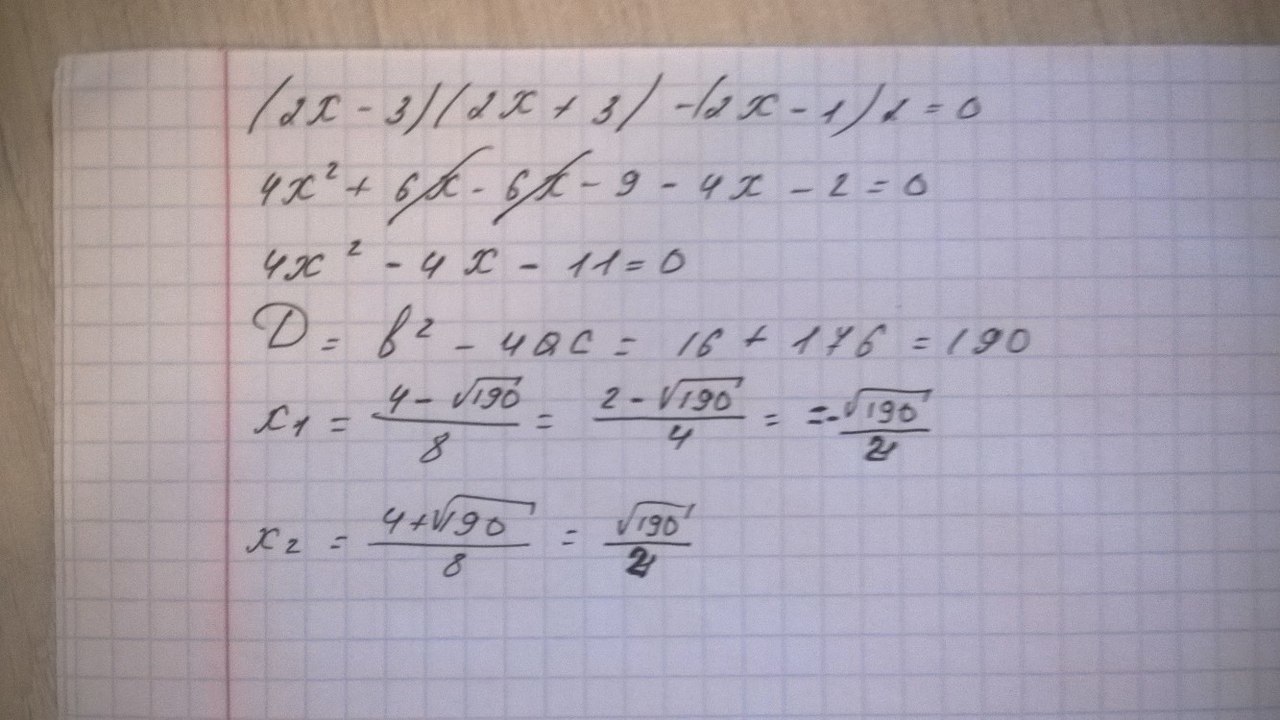 (2x - 3)(2x + 3) - (2x - 1)2 = 0
4x² + 6x - 6x - 9 - 4x - 2 = 0
4x² - 4x - 11 = 0
D = b² - 4ac = 16 + 176 = 190
x1 = (4 - √190)/8 = (2 - √190)/4 = = -√190/2
x2 = (4 + √190)/8 = √190/2